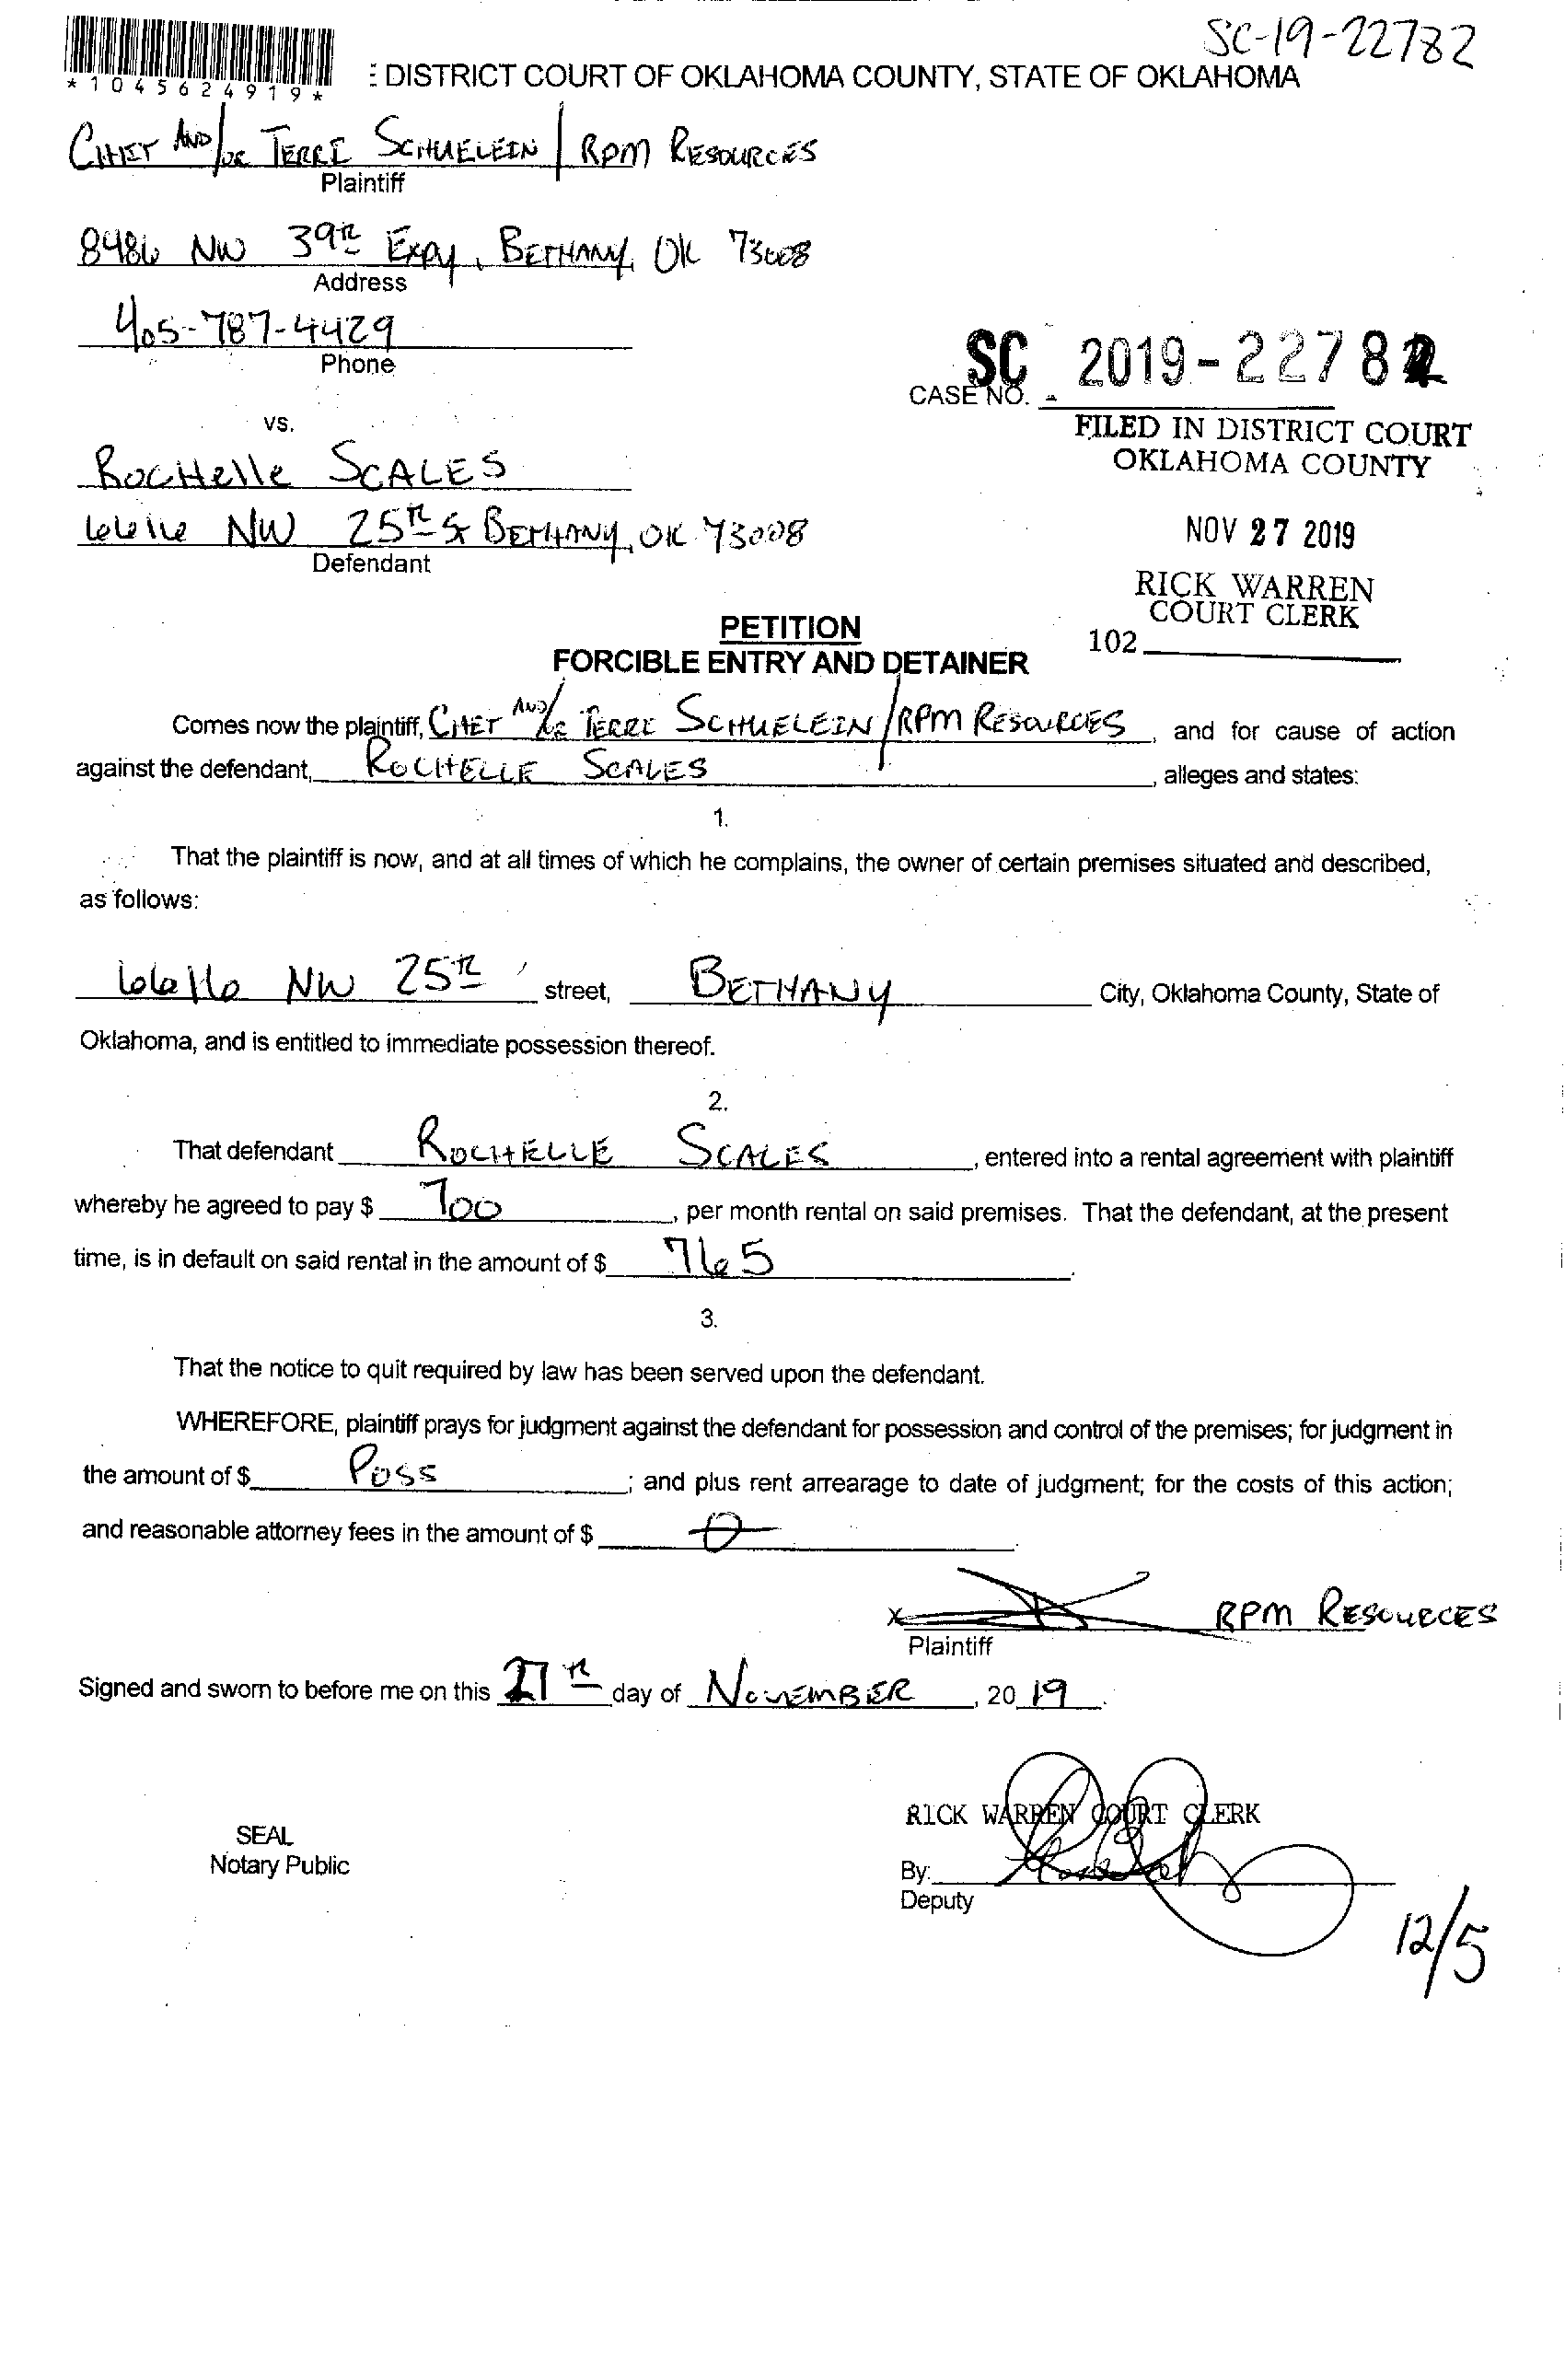 SC-19-22782
*1045624919*
E DISTRICT COURT OF OKLAHOMA COUNTY, STATE OF OKLAHOMA
CHET AND/OR TERRI SCHUELEIN / RPM RESOURCES
Plaintiff
8486 NW 39th EXPY, BETHANY, OK 73008
Address
405-787-4429
Phone
SC 2019-22782
CASE NO.
vs.
FILED IN DISTRICT COURT
OKLAHOMA COUNTY
ROCHelle SCALES
6616 NW 25th St BETHANY, OK 73008
Defendant
NOV 27 2019
RICK WARREN
COURT CLERK
102
PETITION
FORCIBLE ENTRY AND DETAINER
Comes now the plaintiff, CHET AND/OR TERRI SCHUELEIN / RPM RESOURCES, and for cause of action
against the defendant, ROCHELLE SCALES, alleges and states:
1.
That the plaintiff is now, and at all times of which he complains, the owner of certain premises situated and described,
as follows:
6616 NW 25th street, BETHANY City, Oklahoma County, State of
Oklahoma, and is entitled to immediate possession thereof.
2.
That defendant ROCHELLE SCALES, entered into a rental agreement with plaintiff
whereby he agreed to pay $ 700, per month rental on said premises. That the defendant, at the present
time, is in default on said rental in the amount of $ 765.
3.
That the notice to quit required by law has been served upon the defendant.
WHEREFORE, plaintiff prays for judgment against the defendant for possession and control of the premises; for judgment in
the amount of $ Poss; and plus rent arrearage to date of judgment; for the costs of this action;
and reasonable attorney fees in the amount of $ 0.
x RPM RESOURCES
Plaintiff
Signed and sworn to before me on this 27th day of NOVEMBER, 2019.
RICK WARREN COURT CLERK
SEAL
Notary Public
By:
Deputy
12/5